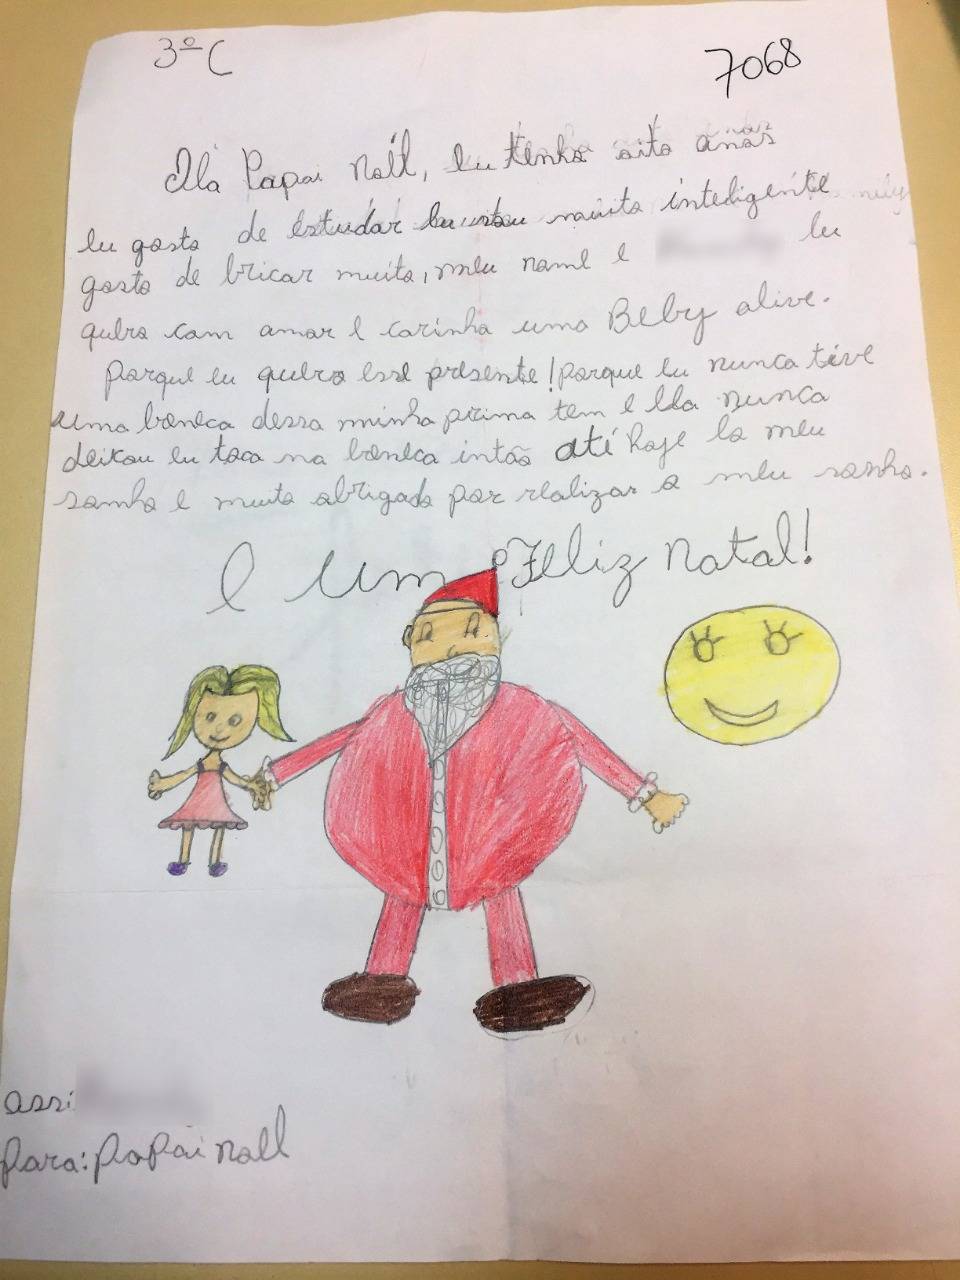 3º C
7068
Olá Papai Noll, eu tenho oito anos
eu gosto de estudar eu estou muita intedigente
gosto de bricar muito, meu nome e eu
quero com amor e carinho uma Beby alive.
Porque eu quero esse presente! porque eu nunca tive
uma boneca dessa minha prima tem e ela nunca
deixou eu toca na boneca intão até hoje eo meu
sonho e muito obrigado por realizar o meu sonho.
E Um Feliz Natal!
assi:
Para: Papai Noll